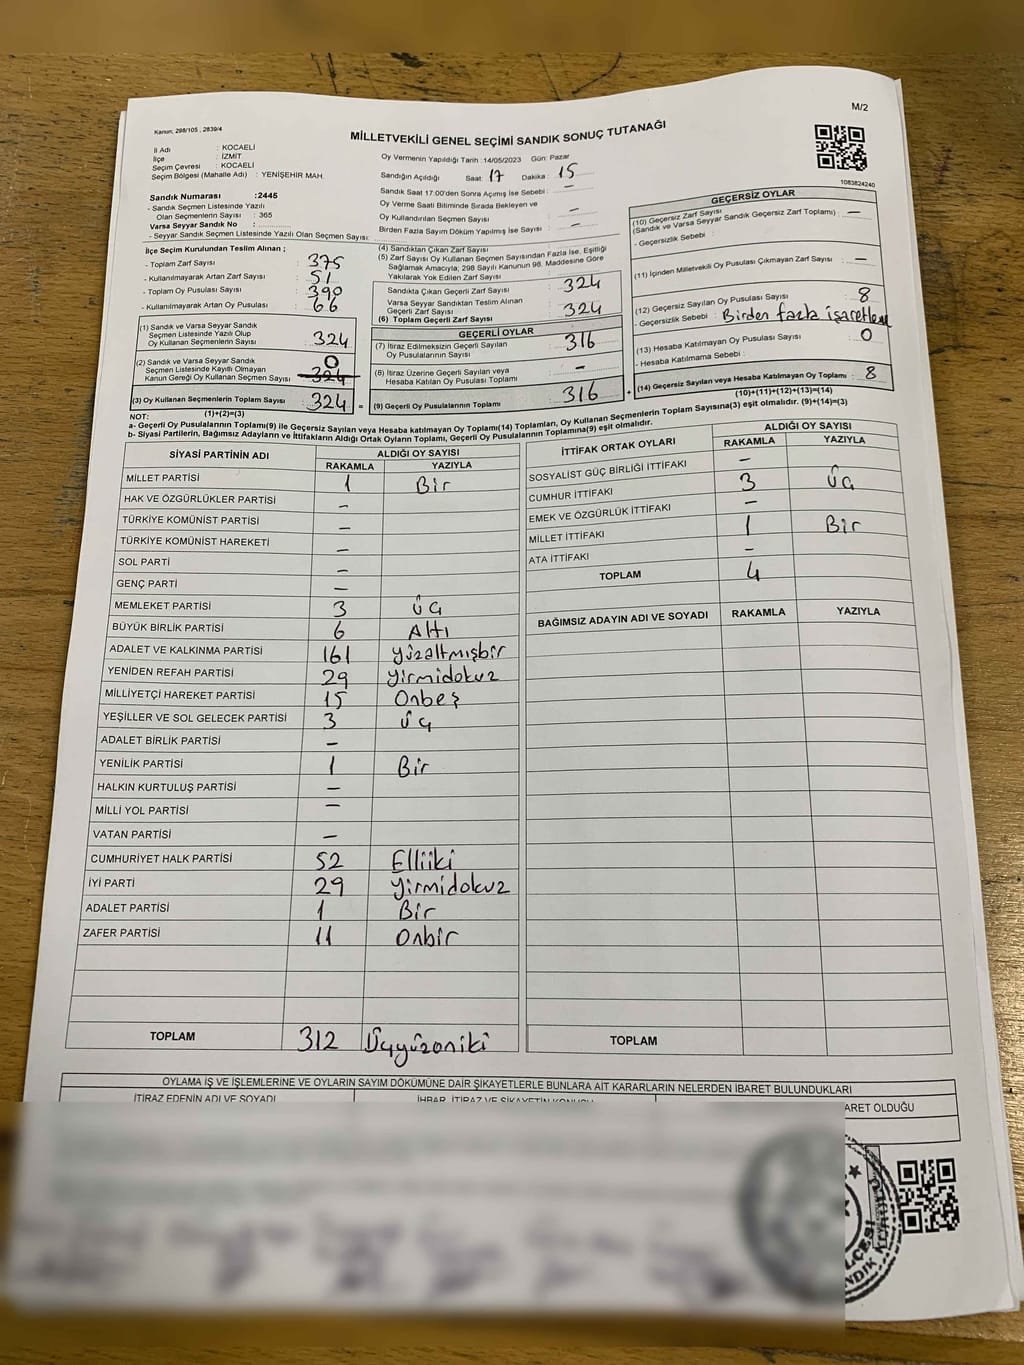 M/2
Kanun; 298/105 , 2839/4
MİLLETVEKİLİ GENEL SEÇİMİ SANDIK SONUÇ TUTANAĞI
İl Adı : KOCAELİ
İlçe : İZMİT
Seçim Çevresi : KOCAELİ
Seçim Bölgesi (Mahalle Adı) : YENİŞEHİR MAH.
Sandık Numarası :2445
- Sandık Seçmen Listesinde Yazılı
Olan Seçmenlerin Sayısı : 365
Varsa Seyyar Sandık No :
- Seyyar Sandık Seçmen Listesinde Yazılı Olan Seçmen Sayısı:
Oy Vermenin Yapıldığı Tarih :14/05/2023 Gün: Pazar
Sandığın Açıldığı Saat: 17 Dakika : 15
Sandık Saat 17:00'den Sonra Açılmış İse Sebebi : –
Oy Verme Saati Bitiminde Sırada Bekleyen ve
Oy Kullandırılan Seçmen Sayısı : –
Birden Fazla Sayım Döküm Yapılmış İse Sayısı : –
1083824240
İlçe Seçim Kurulundan Teslim Alınan ;
- Toplam Zarf Sayısı : 375
- Kullanılmayarak Artan Zarf Sayısı : 51
- Toplam Oy Pusulası Sayısı : 390
- Kullanılmayarak Artan Oy Pusulası : 66
(1) Sandık ve Varsa Seyyar Sandık
Seçmen Listesinde Yazılı Olup
Oy Kullanan Seçmenlerin Sayısı : 324
(2) Sandık ve Varsa Seyyar Sandık
Seçmen Listesinde Kayıtlı Olmayan
Kanun Gereği Oy Kullanan Seçmen Sayısı : 0 324
(3) Oy Kullanan Seçmenlerin Toplam Sayısı : 324 =
(1)+(2)=(3)
(4) Sandıktan Çıkan Zarf Sayısı
(5) Zarf Sayısı Oy Kullanan Seçmen Sayısından Fazla İse, Eşitliği
Sağlamak Amacıyla; 298 Sayılı Kanunun 98. Maddesine Göre
Yakılarak Yok Edilen Zarf Sayısı :
Sandıkta Çıkan Geçerli Zarf Sayısı : 324
Varsa Seyyar Sandıktan Teslim Alınan
Geçerli Zarf Sayısı
(6) Toplam Geçerli Zarf Sayısı : 324
GEÇERLİ OYLAR
(7) İtiraz Edilmeksizin Geçerli Sayılan
Oy Pusulalarının Sayısı : 316
(8) İtiraz Üzerine Geçerli Sayılan veya
Hesaba Katılan Oy Pusulası Toplamı : –
(9) Geçerli Oy Pusulalarının Toplamı : 316 +
GEÇERSİZ OYLAR
(10) Geçersiz Zarf Sayısı
(Sandık ve Varsa Seyyar Sandık Geçersiz Zarf Toplamı) : –
- Geçersizlik Sebebi :
(11) İçinden Milletvekili Oy Pusulası Çıkmayan Zarf Sayısı : –
(12) Geçersiz Sayılan Oy Pusulası Sayısı : 8
- Geçersizlik Sebebi : Birden fazla işaretleme
(13) Hesaba Katılmayan Oy Pusulası Sayısı : 0
- Hesaba Katılmama Sebebi :
(14) Geçersiz Sayılan veya Hesaba Katılmayan Oy Toplamı : 8
(10)+(11)+(12)+(13)=(14)
NOT:
a- Geçerli Oy Pusulalarının Toplamı(9) ile Geçersiz Sayılan veya Hesaba katılmayan Oy Toplamı(14) Toplamları, Oy Kullanan Seçmenlerin Toplam Sayısına(3) eşit olmalıdır. (9)+(14)=(3)
b- Siyasi Partilerin, Bağımsız Adayların ve İttifakların Aldığı Ortak Oyların Toplamı, Geçerli Oy Pusulalarının Toplamına(9) eşit olmalıdır.
SİYASİ PARTİNİN ADI ALDIĞI OY SAYISI
RAKAMLA YAZIYLA
MİLLET PARTİSİ 1 Bir
HAK VE ÖZGÜRLÜKLER PARTİSİ –
TÜRKİYE KOMÜNİST PARTİSİ –
TÜRKİYE KOMÜNİST HAREKETİ –
SOL PARTİ –
GENÇ PARTİ –
MEMLEKET PARTİSİ 3 Üç
BÜYÜK BİRLİK PARTİSİ 6 Altı
ADALET VE KALKINMA PARTİSİ 161 yüzaltmışbir
YENİDEN REFAH PARTİSİ 29 yirmidokuz
MİLLİYETÇİ HAREKET PARTİSİ 15 Onbeş
YEŞİLLER VE SOL GELECEK PARTİSİ 3 Üç
ADALET BİRLİK PARTİSİ –
YENİLİK PARTİSİ 1 Bir
HALKIN KURTULUŞ PARTİSİ –
MİLLİ YOL PARTİSİ –
VATAN PARTİSİ –
CUMHURİYET HALK PARTİSİ 52 Elliiki
İYİ PARTİ 29 yirmidokuz
ADALET PARTİSİ 1 Bir
ZAFER PARTİSİ 11 Onbir
TOPLAM 312 Üçyüzoniki
İTTİFAK ORTAK OYLARI ALDIĞI OY SAYISI
RAKAMLA YAZIYLA
SOSYALİST GÜÇ BİRLİĞİ İTTİFAKI –
CUMHUR İTTİFAKI 3 Üç
EMEK VE ÖZGÜRLÜK İTTİFAKI –
MİLLET İTTİFAKI 1 Bir
ATA İTTİFAKI –
TOPLAM 4
BAĞIMSIZ ADAYIN ADI VE SOYADI RAKAMLA YAZIYLA
TOPLAM
OYLAMA İŞ VE İŞLEMLERİNE VE OYLARIN SAYIM DÖKÜMÜNE DAİR ŞİKAYETLERLE BUNLARA AİT KARARLARIN NELERDEN İBARET BULUNDUKLARI
İTİRAZ EDENİN ADI VE SOYADI İHBAR, İTİRAZ VE ŞİKAYETİN KONUSU